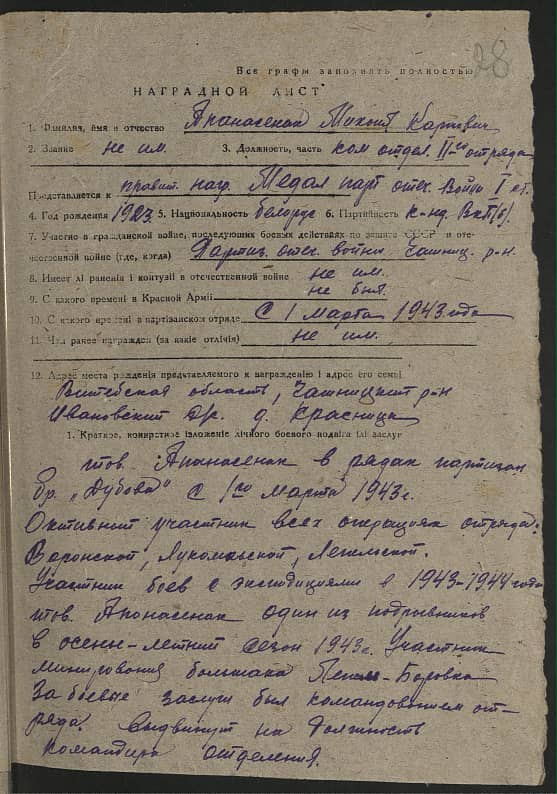 28
Все графы заполнять полностью
НАГРАДНОЙ ЛИСТ
1. Фамилия, імя и отчество Апанасенак Михаил Карпович
2. Звание не им. 3. Должность, часть ком. отдел. II-го отряда
Представляется к правит. наг. Медал парт. отеч. Войны I ст.
4. Год рождения 1923 5. Национальность белорус 6. Партийность к-нд. ВкП(б)
7. Участие в гражданской войне, последующих боевых действиях по защите СССР и оте-
чественной войне (где, когда) Партиз. отеч. войны Чашниц. р-н.
8. Имеет лі раненія і контузіі в отечественной войне не им.
9. С какого времені в Красной Арміі не был.
10. С какого времені в партізанском отряде С 1 Марта 1943 года
11. Чем ранее награжден (за какіе отлічія) не им.
12. Адрес места рожденія представляемого к награжденію і адрес его семьі
Витебская область, Чашницкий р-н
Ивановский с/с. д. Красница
1. Краткое, конкретное ізложеніе лічного боевого подвіга ілі заслуг
тов. Апанасенак в рядах партизан
бр. „Дубова" с 1го Марта 1943 г.
Октивный участник всех операциях отряда:
Воронской, Лукомльской, Лепельской.
Участник боев с экспидициями в 1943-1944 годы
тов. Апонасенак один из подрывников
в осенне-летний сезон 1943 г. Участник
минирования большака Лепель-Боровка
За боевые заслуги был командованием от-
ряда. Выдвинут на должность
командира отделения.